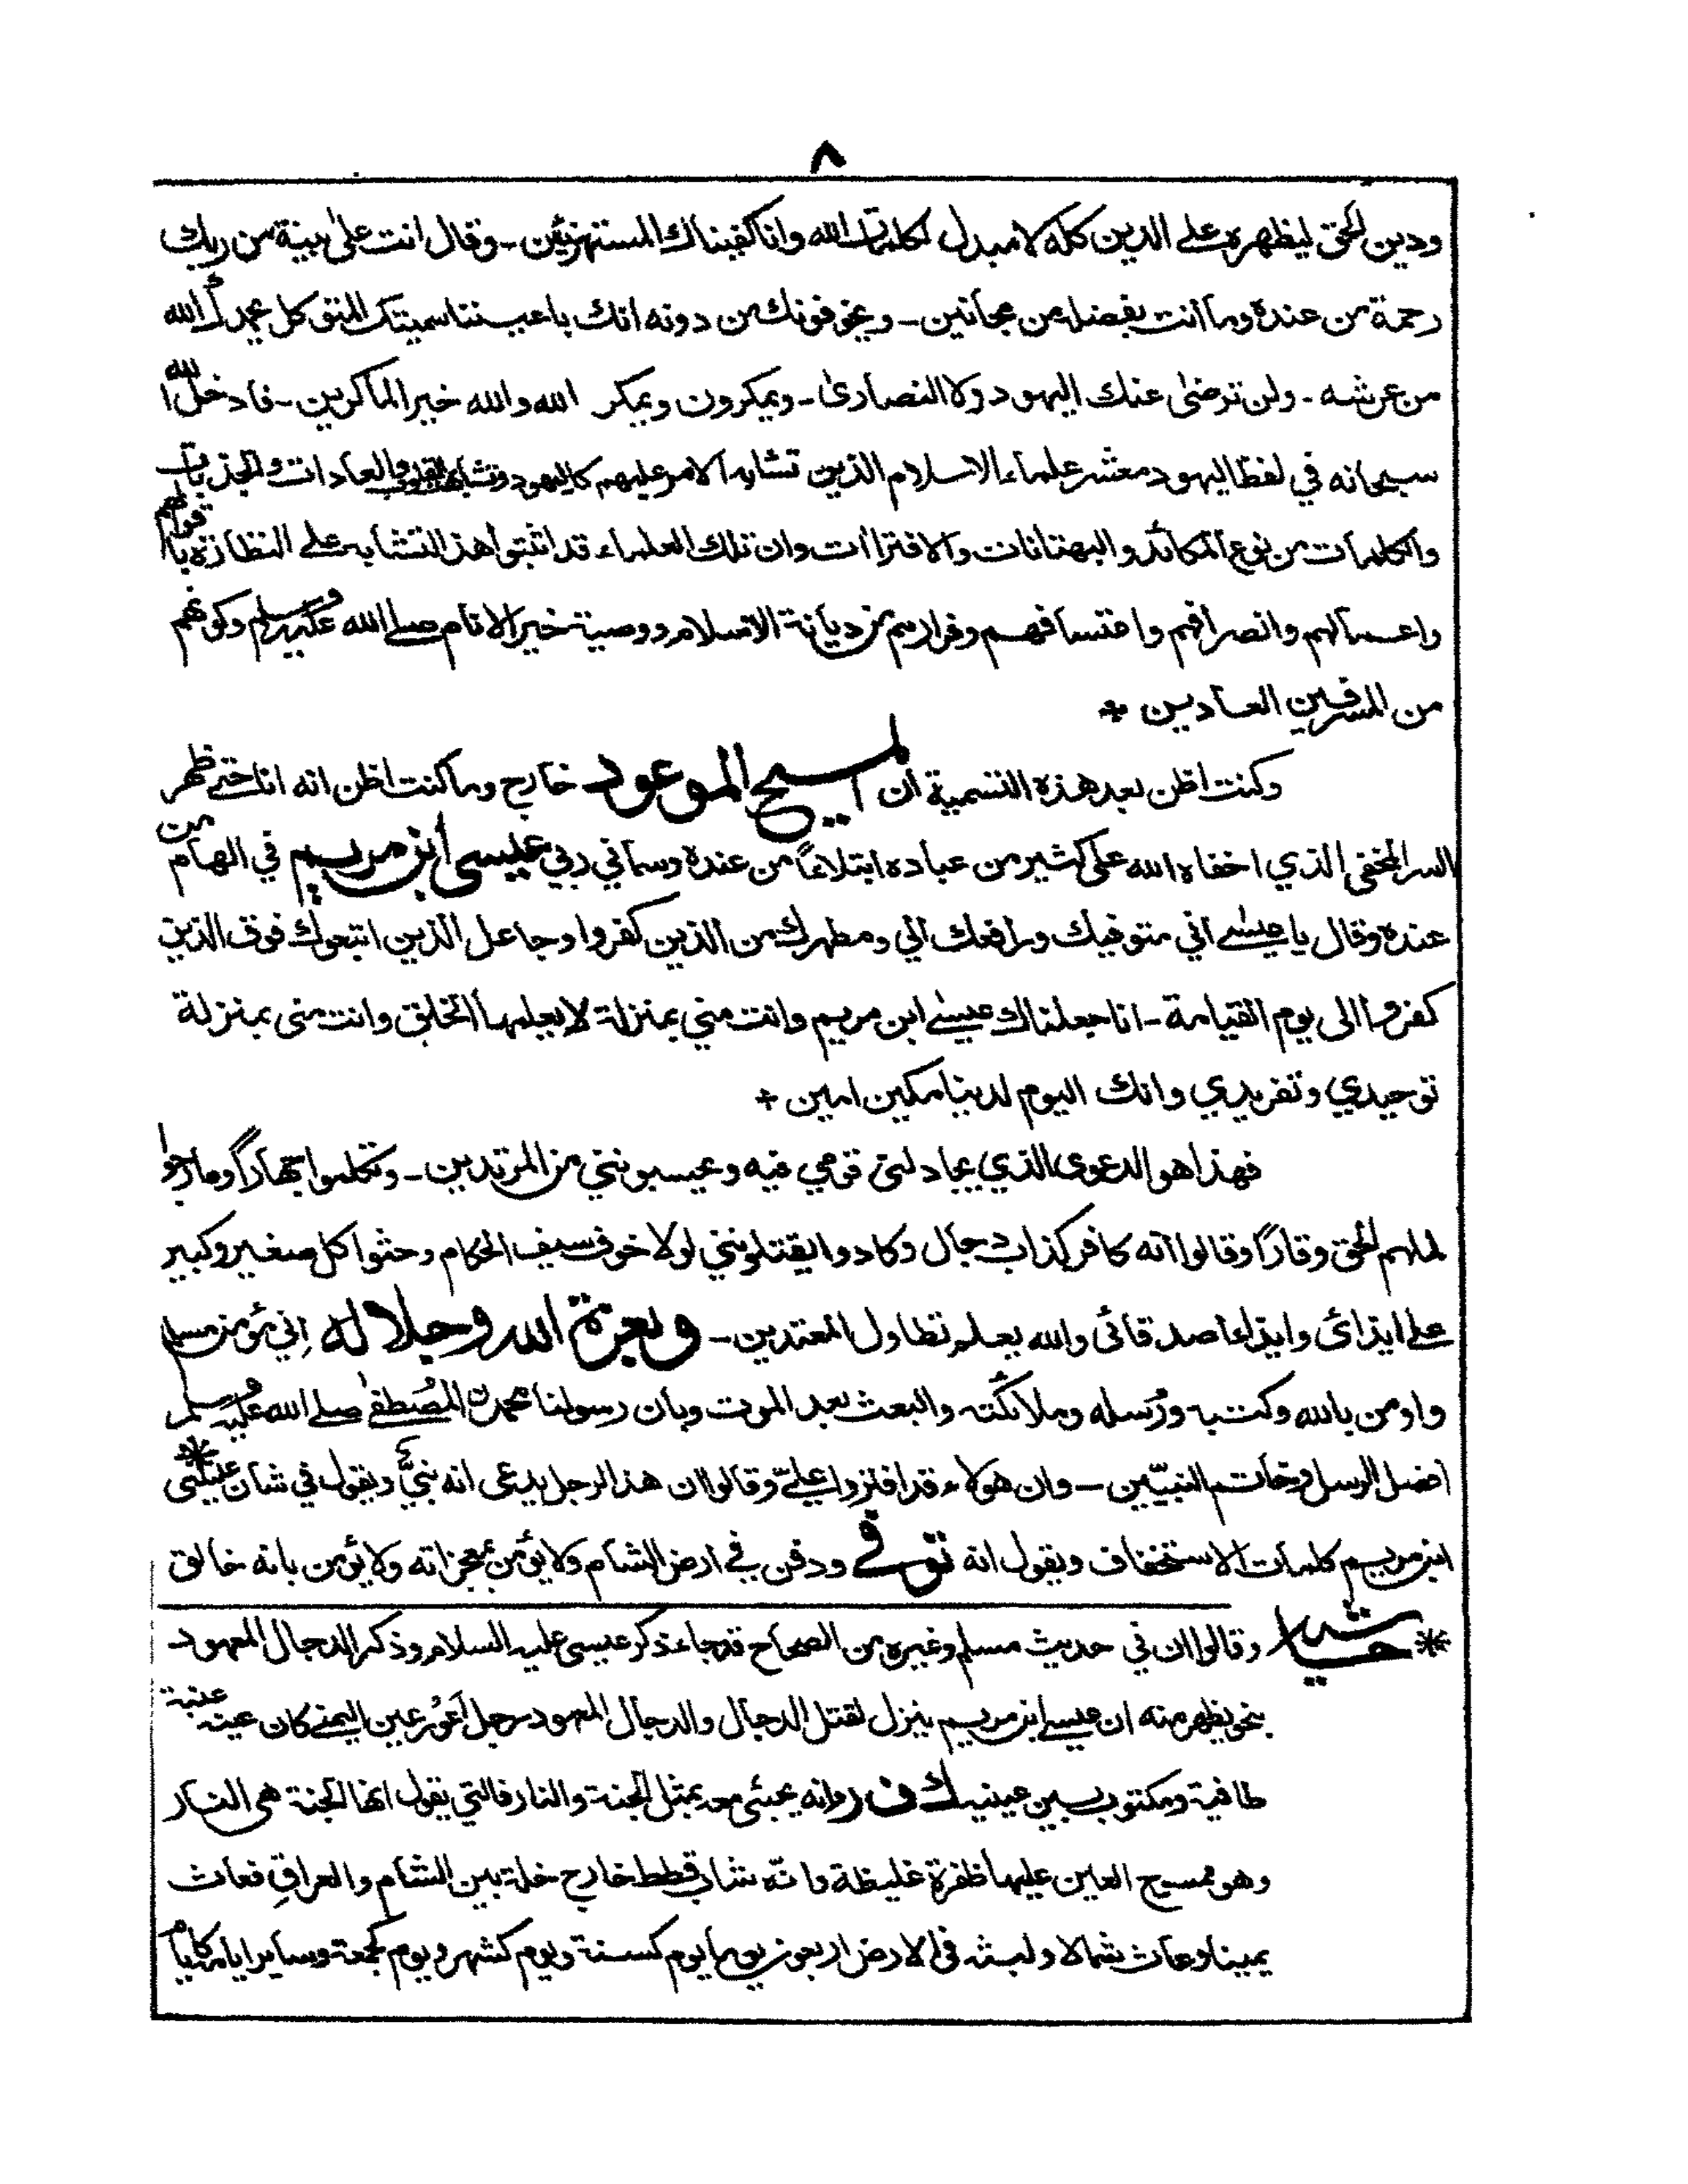 ٨
ودين الحق ليظهره على الدين كله لا مبدل لكلمات الله وانا كفيناك المستهزئين - وقال انت على بينة من ربك
رحمة من عنده وما انت بفضله من مجانين - ويخوفونك من دونه انك باعيننا سميتك المتوكل يحمدك الله
من عرشه - ولن ترضى عنك اليهود ولا النصارى - ويمكرون ويمكر الله والله خير الماكرين - فادخل الله
سبحانه في لفظ اليهود معشر علماء الاسلام الذين تشابه الامر عليهم كاليهود وتشابهت القلوب والعادات والجذبات
والكلمات من نوع المكائد والبهتانات والافتراءات وان تلك العلماء قد اثبتوا هذا التشابه على النظارة باقوالهم
واعمالهم وانصرافهم واعتسافهم وفرارهم من ديانة الاسلام ووصية خير الانام صلى الله عليه وسلم وكونهم
من المسرفين العادين +
وكنت اظن بعد هذه التسمية ان المسيح الموعود خارج وما كنت اظن انه انا حتى ظهر
السر المخفي الذي اخفاه الله على كثير من عباده ابتلاءً من عنده وسماني ربي عيسى ابن مريم في الهام من
عنده وقال يا عيسى اني متوفيك ورافعك الي ومطهرك من الذين كفروا وجاعل الذين اتبعوك فوق الذين
كفروا الى يوم القيامة - انا جعلناك عيسى ابن مريم وانت مني بمنزلة لا يعلمها الخلق وانت مني بمنزلة
توحيدي وتفريدي وانك اليوم لدينا مكين امين +
فهذا هو الدعوى الذي يجادلني قومي فيه ويحسبونني من المرتدين - وتكلموا جهاراً وما رجوا
لملهم الحق وقاراً وقالوا انه كافر كذاب دجال وكادوا يقتلونني لولا خوف سيف الحكام وحثوا كل صغير وكبير
على ايذائي وايذاء اصدقائي والله يعلم تطاول المعتدين - وبعزة الله وجلاله اني مؤمن مسلم
واومن بالله وكتبه ورسله وملائكته والبعث بعد الموت وبان رسولنا محمدن المصطفى صلى الله عليه وسلم
افضل الرسل وخاتم النبيّين - وان هولاء قد افتروا عليّ وقالوا ان هذا الرجل يدعى انه نبيٌّ ويقول في شان عيسى *
ابن مريم كلمات الاستخفاف ويقول انه توفي ودفن في ارض الشام ولا يؤمن بمعجزاته ولا يؤمن بانه خالق
* حاشية وقالوا ان في حديث مسلم وغيره من الصحاح قد جاء ذكر عيسى عليه السلام وذكر الدجال المعهود
بنحو يظهر منه ان عيسى ابن مريم ينزل لقتل الدجال والدجال المعهود رجل اعور عين اليمنى كان عينه عنبة
طافية ومكتوب بين عينيه ك ف ر وانه يجئ معه بمثل الجنة والنار فالتي يقول انها الجنة هي النار
وهو ممسوح العين عليها ظفرة غليظة وانّه شاب قطط خارج خلة بين الشام والعراق فعاث
يمينا وعاث شمالا ولبثه في الارض اربعون يوما يوم كسنة ويوم كشهر ويوم كجمعة وساير ايامه كايام